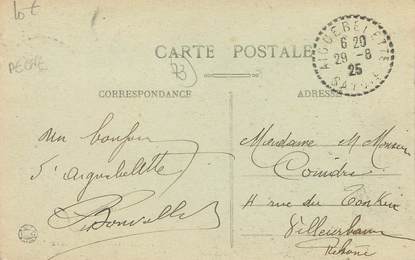 lot
PECHE
CARTE POSTALE
73
AIGUEBELETTE
6 20
29 - 8
25
SAVOIE
CORRESPONDANCE
un bonjour
d'aiguebelette
ADRESSE
Madame M Monsieur
Coindre
rue du Tonkin
Villeurbanne
Rhône